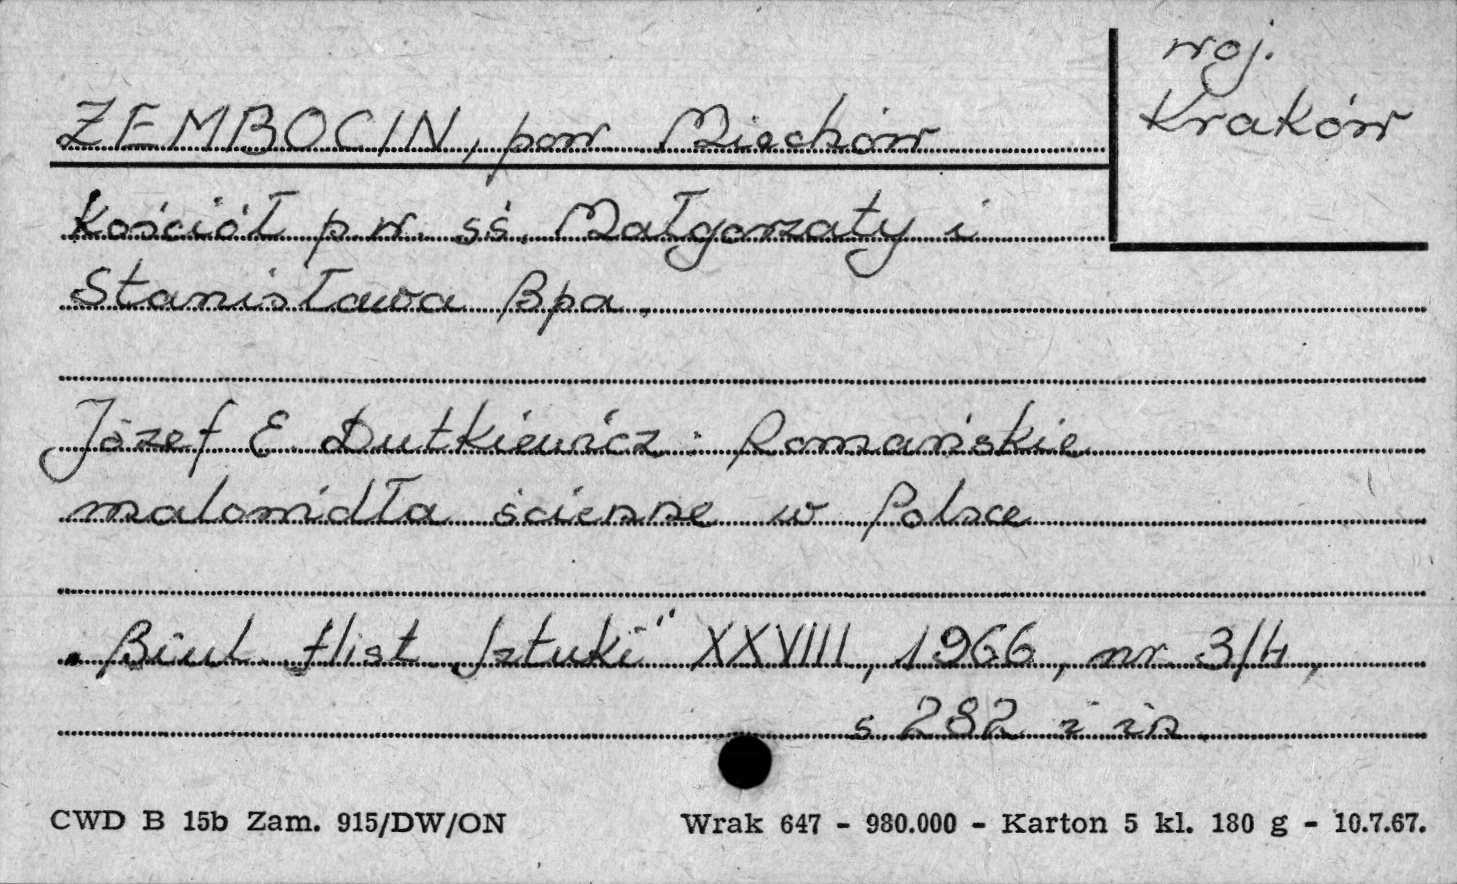 woj.
Kraków
ZEMBOCIN, pow Miechów
Kościół p.w. śś. Małgorzaty i
Stanisława Bpa.
Józef E Dutkiewicz: Romańskie
malowidła ścienne w Polsce
„Biul. Hist. Sztuki" XXVIII, 1966, nr 3/4,
s. 282 i in.
CWD B 15b Zam. 915/DW/ON Wrak 647 - 980.000 - Karton 5 kl. 180 g - 10.7.67.